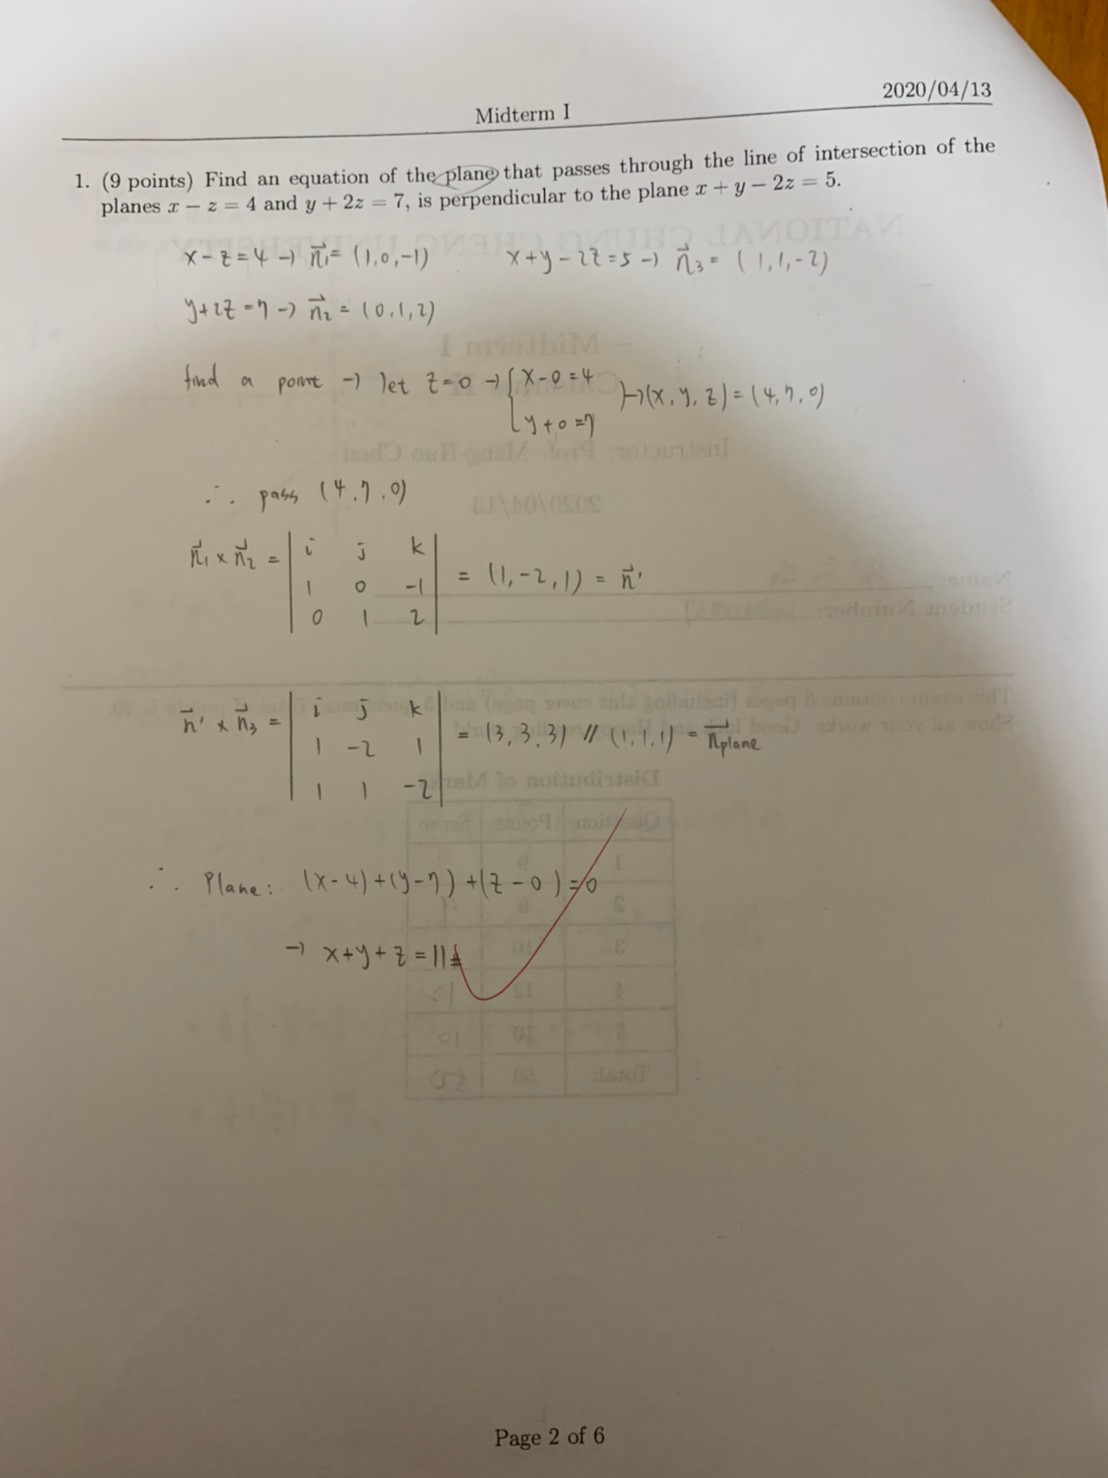 2020/04/13
Midterm I
1. (9 points) Find an equation of the plane that passes through the line of intersection of the
planes x − z = 4 and y + 2z = 7, is perpendicular to the plane x + y − 2z = 5.
x-z=4 → n⃗₁= (1,0,-1)    x+y-2z=5 → n⃗₃= (1,1,-2)
y+2z=7 → n⃗₂ = (0,1,2)
find a point → let z=0 → { x-0=4
y+0=7 } → (x,y,z)=(4,7,0)
∴ pass (4,7,0)
n⃗₁ × n⃗₂ = | i j k
1 0 -1
0 1 2 | = (1,-2,1) = n⃗'
n⃗' × n⃗₃ = | i j k
1 -2 1
1 1 -2 | = (3,3,3) // (1,1,1) = n⃗plane
∴ Plane: (x-4)+(y-7)+(z-0)=0
→ x+y+z=11
Page 2 of 6